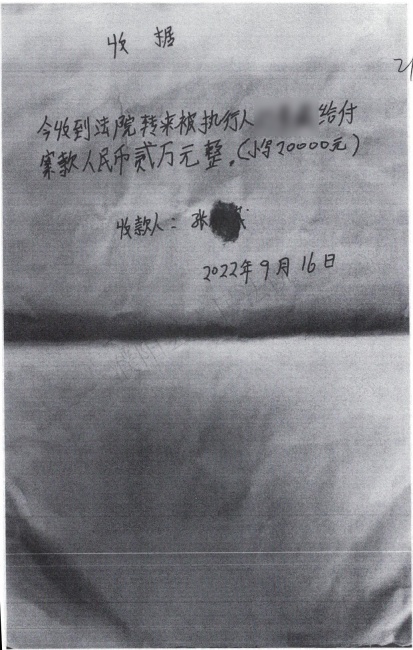 收据
21
今收到法院转来被执行人 给付
案款人民币贰万元整。(小写20000元)
收款人:张
2022年9月16日